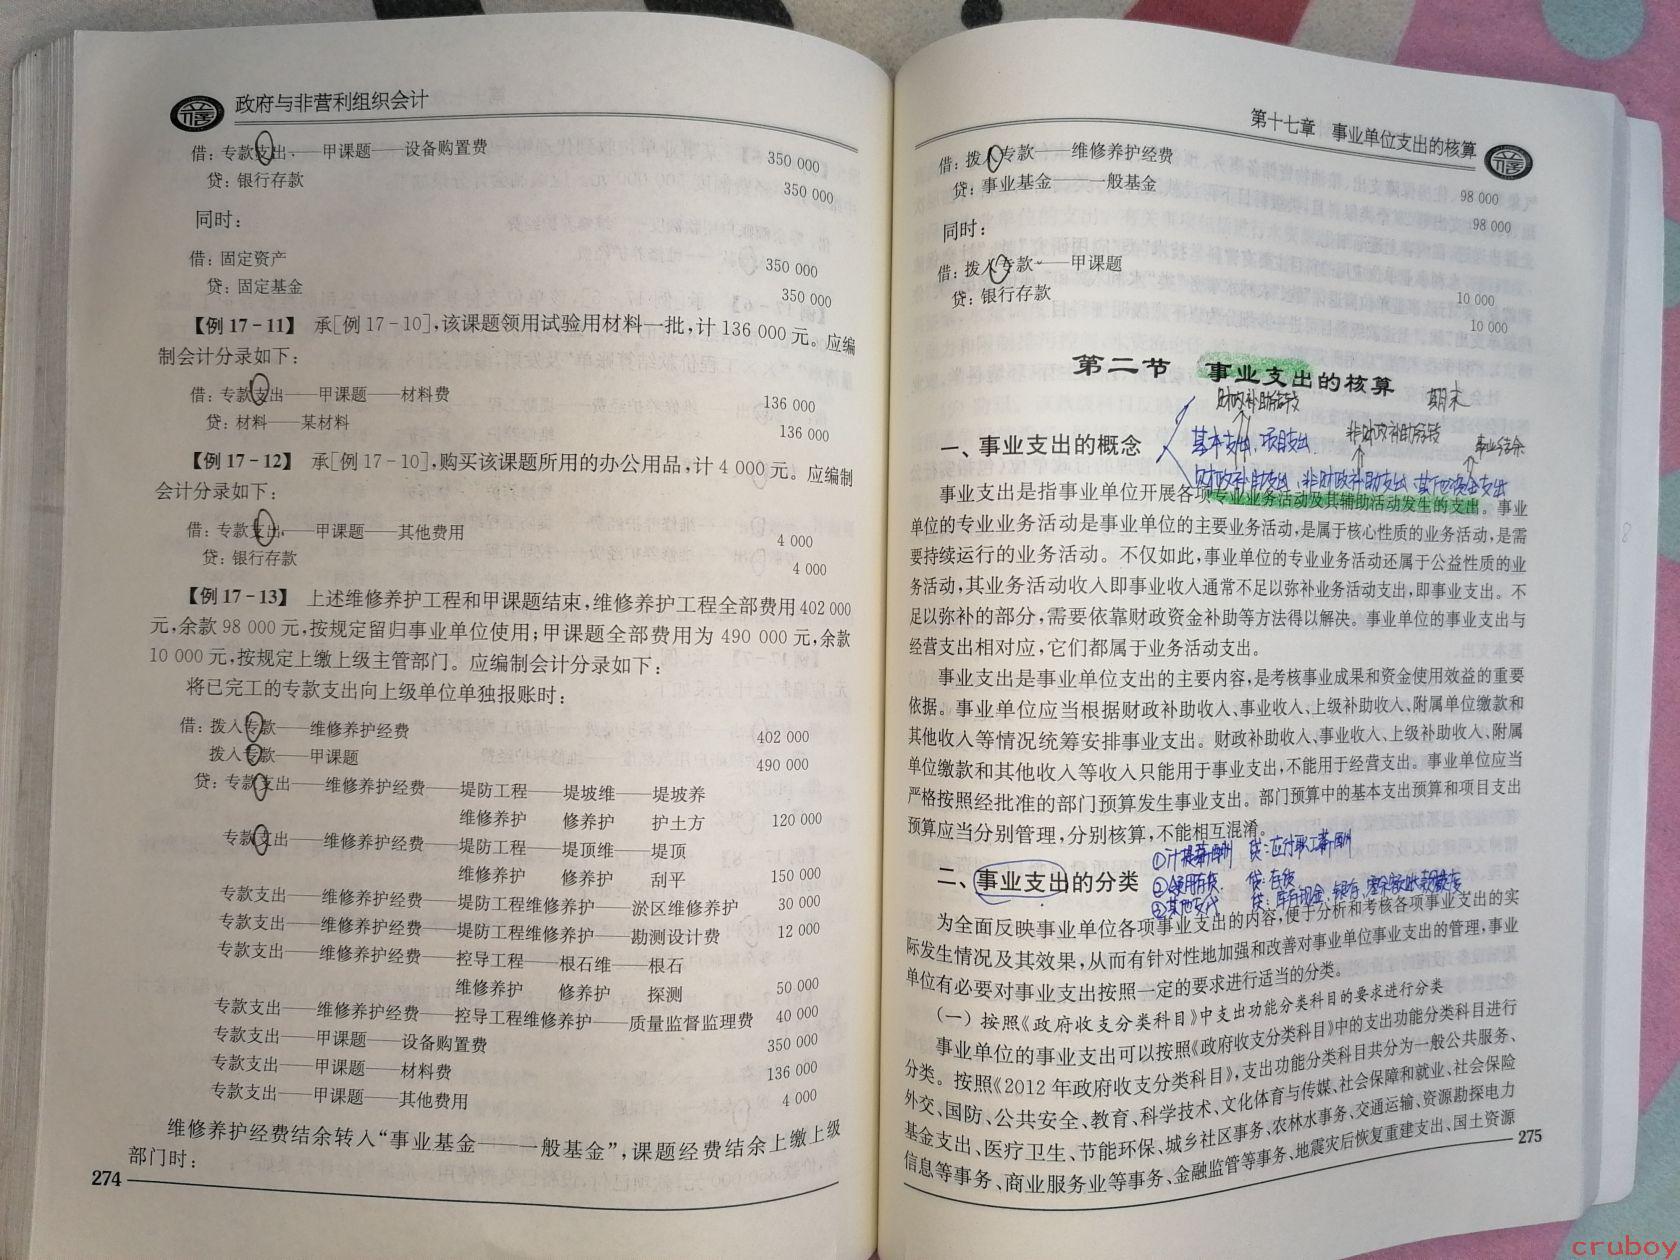 政府与非营利组织会计
借：专款支出——甲课题——设备购置费 350 000
贷：银行存款 350 000
同时：
借：固定资产 350 000
贷：固定基金 350 000
【例 17-11】 承[例 17-10]，该课题领用试验用材料一批，计 136 000 元。应编
制会计分录如下：
借：专款支出——甲课题——材料费 136 000
贷：材料——某材料 136 000
【例 17-12】 承[例 17-10]，购买该课题所用的办公用品，计 4 000 元。应编制
会计分录如下：
借：专款支出——甲课题——其他费用 4 000
贷：银行存款 4 000
【例 17-13】 上述维修养护工程和甲课题结束，维修养护工程全部费用 402 000
元，余款 98 000 元，按规定留归事业单位使用；甲课题全部费用为 490 000 元，余款
10 000 元，按规定上缴上级主管部门。应编制会计分录如下：
将已完工的专款支出向上级单位单独报账时：
借：拨入专款——维修养护经费 402 000
拨入专款——甲课题 490 000
贷：专款支出——维修养护经费——堤防工程——堤坡维——堤坡养
维修养护 修养护 护土方 120 000
专款支出——维修养护经费——堤防工程——堤顶维——堤顶
维修养护 修养护 刮平 150 000
专款支出——维修养护经费——堤防工程维修养护——淤区维修养护 30 000
专款支出——维修养护经费——堤防工程维修养护——勘测设计费 12 000
专款支出——维修养护经费——控导工程——根石维——根石
维修养护 修养护 探测 50 000
专款支出——维修养护经费——控导工程维修养护——质量监督监理费 40 000
专款支出——甲课题——设备购置费 350 000
专款支出——甲课题——材料费 136 000
专款支出——甲课题——其他费用 4 000
维修养护经费结余转入“事业基金——一般基金”，课题经费结余上缴上级
部门时：
274
第十七章 事业单位支出的核算
借：拨入专款——维修养护经费 98 000
贷：事业基金——一般基金 98 000
同时：
借：拨入专款——甲课题 10 000
贷：银行存款 10 000
第二节 事业支出的核算
财政补助结转 期末
一、事业支出的概念
基本支出、项目支出 非财政补助结转 事业结余
财政补助支出、非财政补助支出、其他资金支出
事业支出是指事业单位开展各项专业业务活动及其辅助活动发生的支出。事业
单位的专业业务活动是事业单位的主要业务活动，是属于核心性质的业务活动，是需
要持续运行的业务活动。不仅如此，事业单位的专业业务活动还属于公益性质的业
务活动，其业务活动收入即事业收入通常不足以弥补业务活动支出，即事业支出。不
足以弥补的部分，需要依靠财政资金补助等方法得以解决。事业单位的事业支出与
经营支出相对应，它们都属于业务活动支出。
事业支出是事业单位支出的主要内容，是考核事业成果和资金使用效益的重要
依据。事业单位应当根据财政补助收入、事业收入、上级补助收入、附属单位缴款和
其他收入等情况统筹安排事业支出。财政补助收入、事业收入、上级补助收入、附属
单位缴款和其他收入等收入只能用于事业支出，不能用于经营支出。事业单位应当
严格按照经批准的部门预算发生事业支出。部门预算中的基本支出预算和项目支出
预算应当分别管理，分别核算，不能相互混淆。
①计提薪酬 贷：应付职工薪酬
二、事业支出的分类
②领用存货 贷：存货
贷：库存现金、银存、零余额账款额度
为全面反映事业单位各项事业支出的内容，便于分析和考核各项事业支出的实
际发生情况及其效果，从而有针对性地加强和改善对事业单位事业支出的管理，事业
单位有必要对事业支出按照一定的要求进行适当的分类。
（一）按照《政府收支分类科目》中支出功能分类科目的要求进行分类
事业单位的事业支出可以按照《政府收支分类科目》中的支出功能分类科目进行
分类。按照《2012 年政府收支分类科目》，支出功能分类科目共分为一般公共服务、
外交、国防、公共安全、教育、科学技术、文化体育与传媒、社会保障和就业、社会保险
基金支出、医疗卫生、节能环保、城乡社区事务、农林水事务、交通运输、资源勘探电力
信息等事务、商业服务业等事务、金融监管等事务、地震灾后恢复重建支出、国土资源
275
cruboy